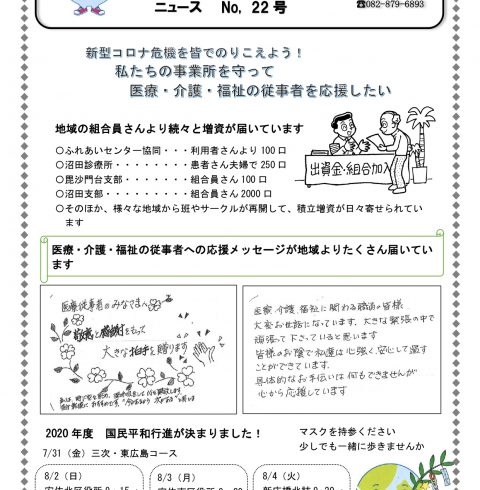 ニュース No, 22 号
☎082-879-6893
新型コロナ危機を皆でのりこえよう！
私たちの事業所を守って
医療・介護・福祉の従事者を応援したい
地域の組合員さんより続々と増資が届いています
〇ふれあいセンター協同・・・利用者さんより 100 口
〇沼田診療所・・・・・・・・患者さん夫婦で 250 口
〇毘沙門台支部・・・・・・・組合員さん 100 口
〇沼田支部・・・・・・・・・組合員さん 2000 口
〇そのほか、様々な地域から班やサークルが再開して、積立増資が日々寄せられてい
ます
出資金・組合加入
医療・介護・福祉の従事者への応援メッセージが地域よりたくさん届いてい
ます
医療従事者のみなさまへ
敬意と感謝をもって
大きな拍手を贈ります
医療、介護、福祉に関わる職員の皆様
大変お世話になっています。大きな緊張の中で
頑張って下さっていると思います
皆様のお陰で私達は心強く、安心して過す
ことができています。
具体的なお手伝いは何もできませんが
心から応援しています
2020 年度 国民平和行進が決まりました！
マスクを持参ください
少しでも一緒に歩きませんか
7/31（金）三次・東広島コース
8/2（日）
8/3（月）
8/4（火）